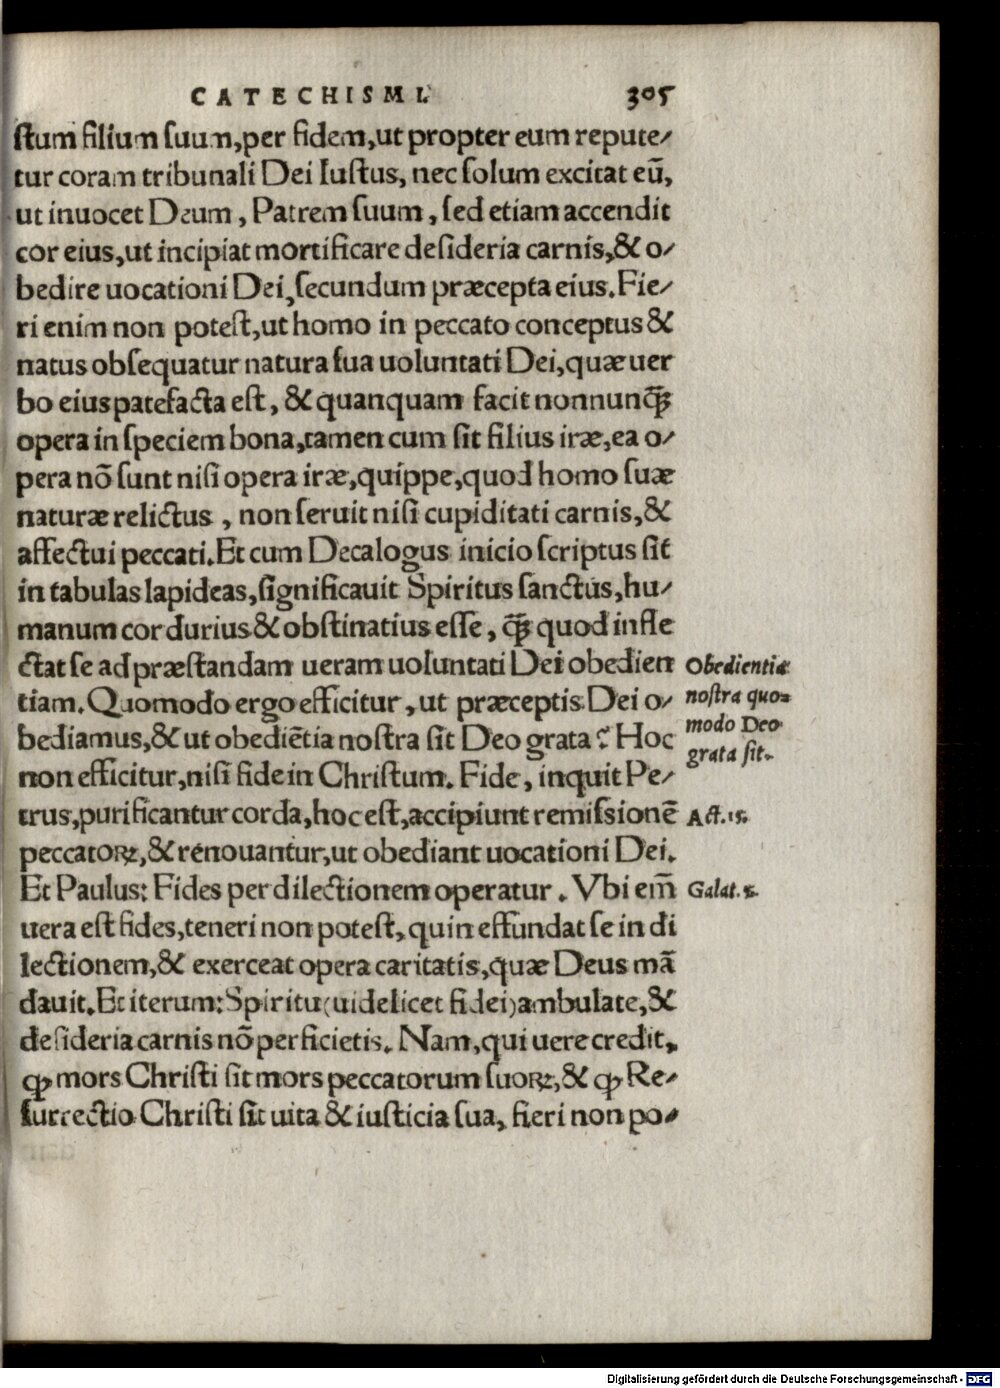 CATECHISMI. 305
ſtum filium ſuum,per fidem,ut propter eum repute⸗
tur coram tribunali Dei Iuſtus, nec ſolum excitat eū,
ut inuocet Deum, Patrem ſuum, ſed etiam accendit
cor eius,ut incipiat mortificare deſideria carnis,& o⸗
bedire uocationi Dei,ſecundum præcepta eius.Fie⸗
ri enim non poteſt,ut homo in peccato conceptus &
natus obſequatur natura ſua uoluntati Dei,quæ uer
bo eius patefacta eſt, & quanquam facit nonnunꝗ̃
opera in ſpeciem bona,tamen cum ſit filius iræ,ea o⸗
pera nō ſunt niſi opera iræ,quippe,quod homo ſuæ
naturæ relictus, non ſeruit niſi cupiditati carnis,&
affectui peccati.Et cum Decalogus inicio ſcriptus ſit
in tabulas lapideas,ſignificauit Spiritus ſanctus,hu⸗
manum cor durius & obſtinatius eſſe, ꝗ̃ quod infle
ctat ſe ad præſtandam ueram uoluntati Dei obedien
tiam.Quomodo ergo efficitur, ut præceptis Dei o⸗
bediamus,& ut obediētia noſtra ſit Deo grata? Hoc
non efficitur,niſi fide in Chriſtum. Fide, inquit Pe⸗
trus,purificantur corda,hoc eſt,accipiunt remiſsionē
peccatoꝝ,& renouantur,ut obediant uocationi Dei.
Et Paulus: Fides per dilectionem operatur. Vbi em̄
uera eſt fides,teneri non poteſt, quin effundat ſe in di
lectionem,& exerceat opera caritatis,quæ Deus mā
dauit.Et iterum: Spiritu(uidelicet fidei)ambulate,&
deſideria carnis nō perficietis. Nam,qui uere credit,
ꝙ mors Chriſti ſit mors peccatorum ſuoꝝ,& ꝙ Re⸗
ſurrectio Chriſti ſit uita & iuſticia ſua, fieri non po⸗
Obedientia
noſtra quo⸗
modo Deo
grata ſit.
Act.15.
Galat.5.
Digitalisierung gefördert durch die Deutsche Forschungsgemeinschaft - DFG